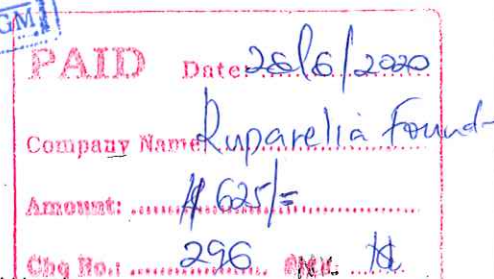 GM
PAID Date: 26/6/2020
Company Name Ruparelia Found-
Amount: # 625/=
Chq No.: 296